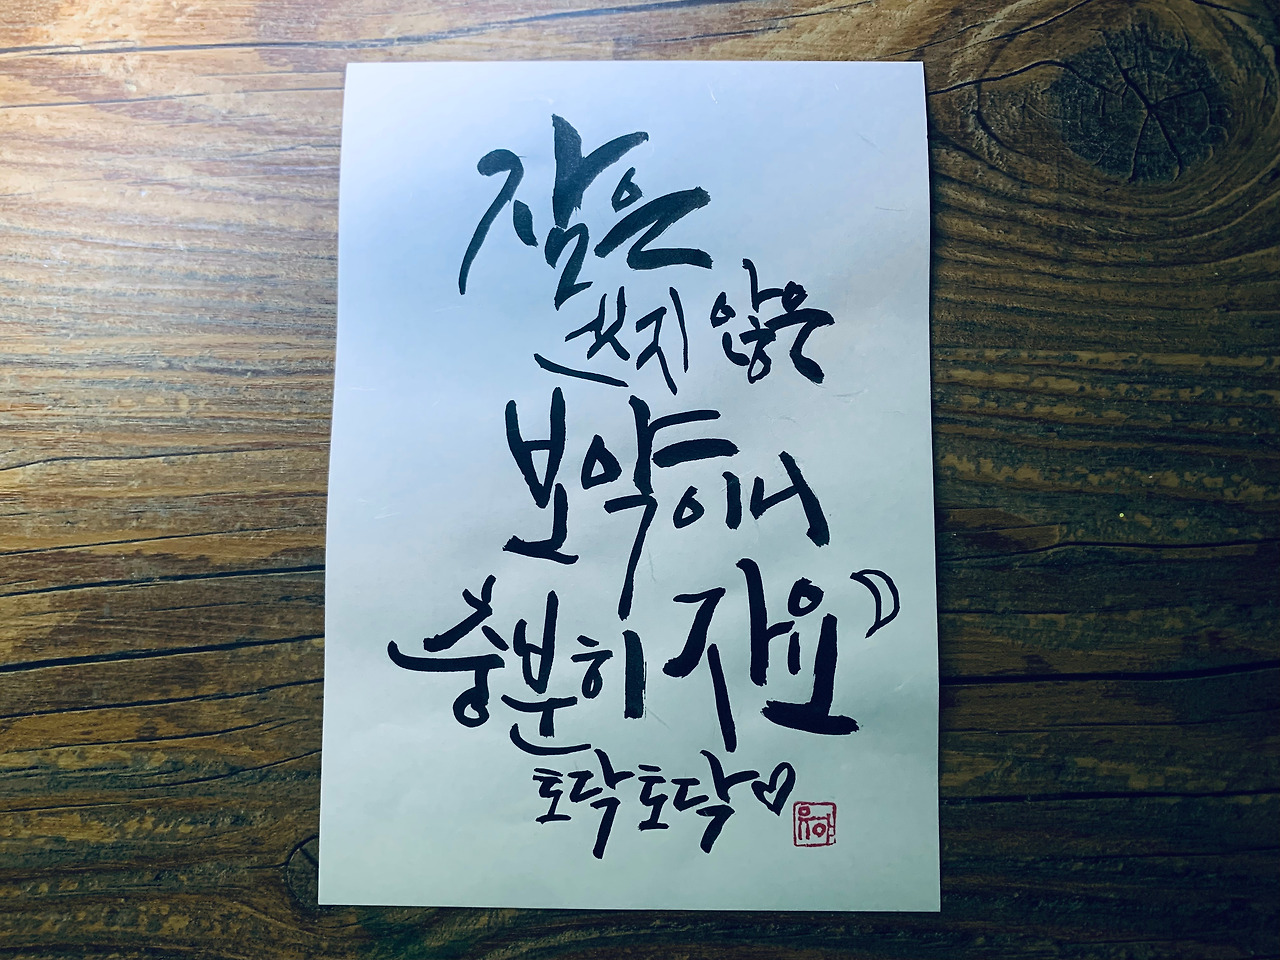 잠은
쓰지 않은
보약이니
충분히 자요
토닥토닥
유야